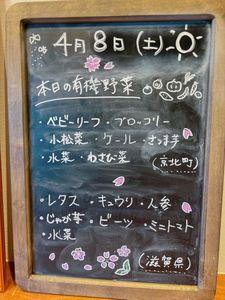 4月8日(土)
本日の有機野菜
・ベビーリーフ・ブロッコリー
・小松菜・ケール・さつま芋
・水菜・わさび菜
(京北町)
・レタス・キュウリ・人参
・じゃが芋・ビーツ・ミニトマト
・水菜
(滋賀県)